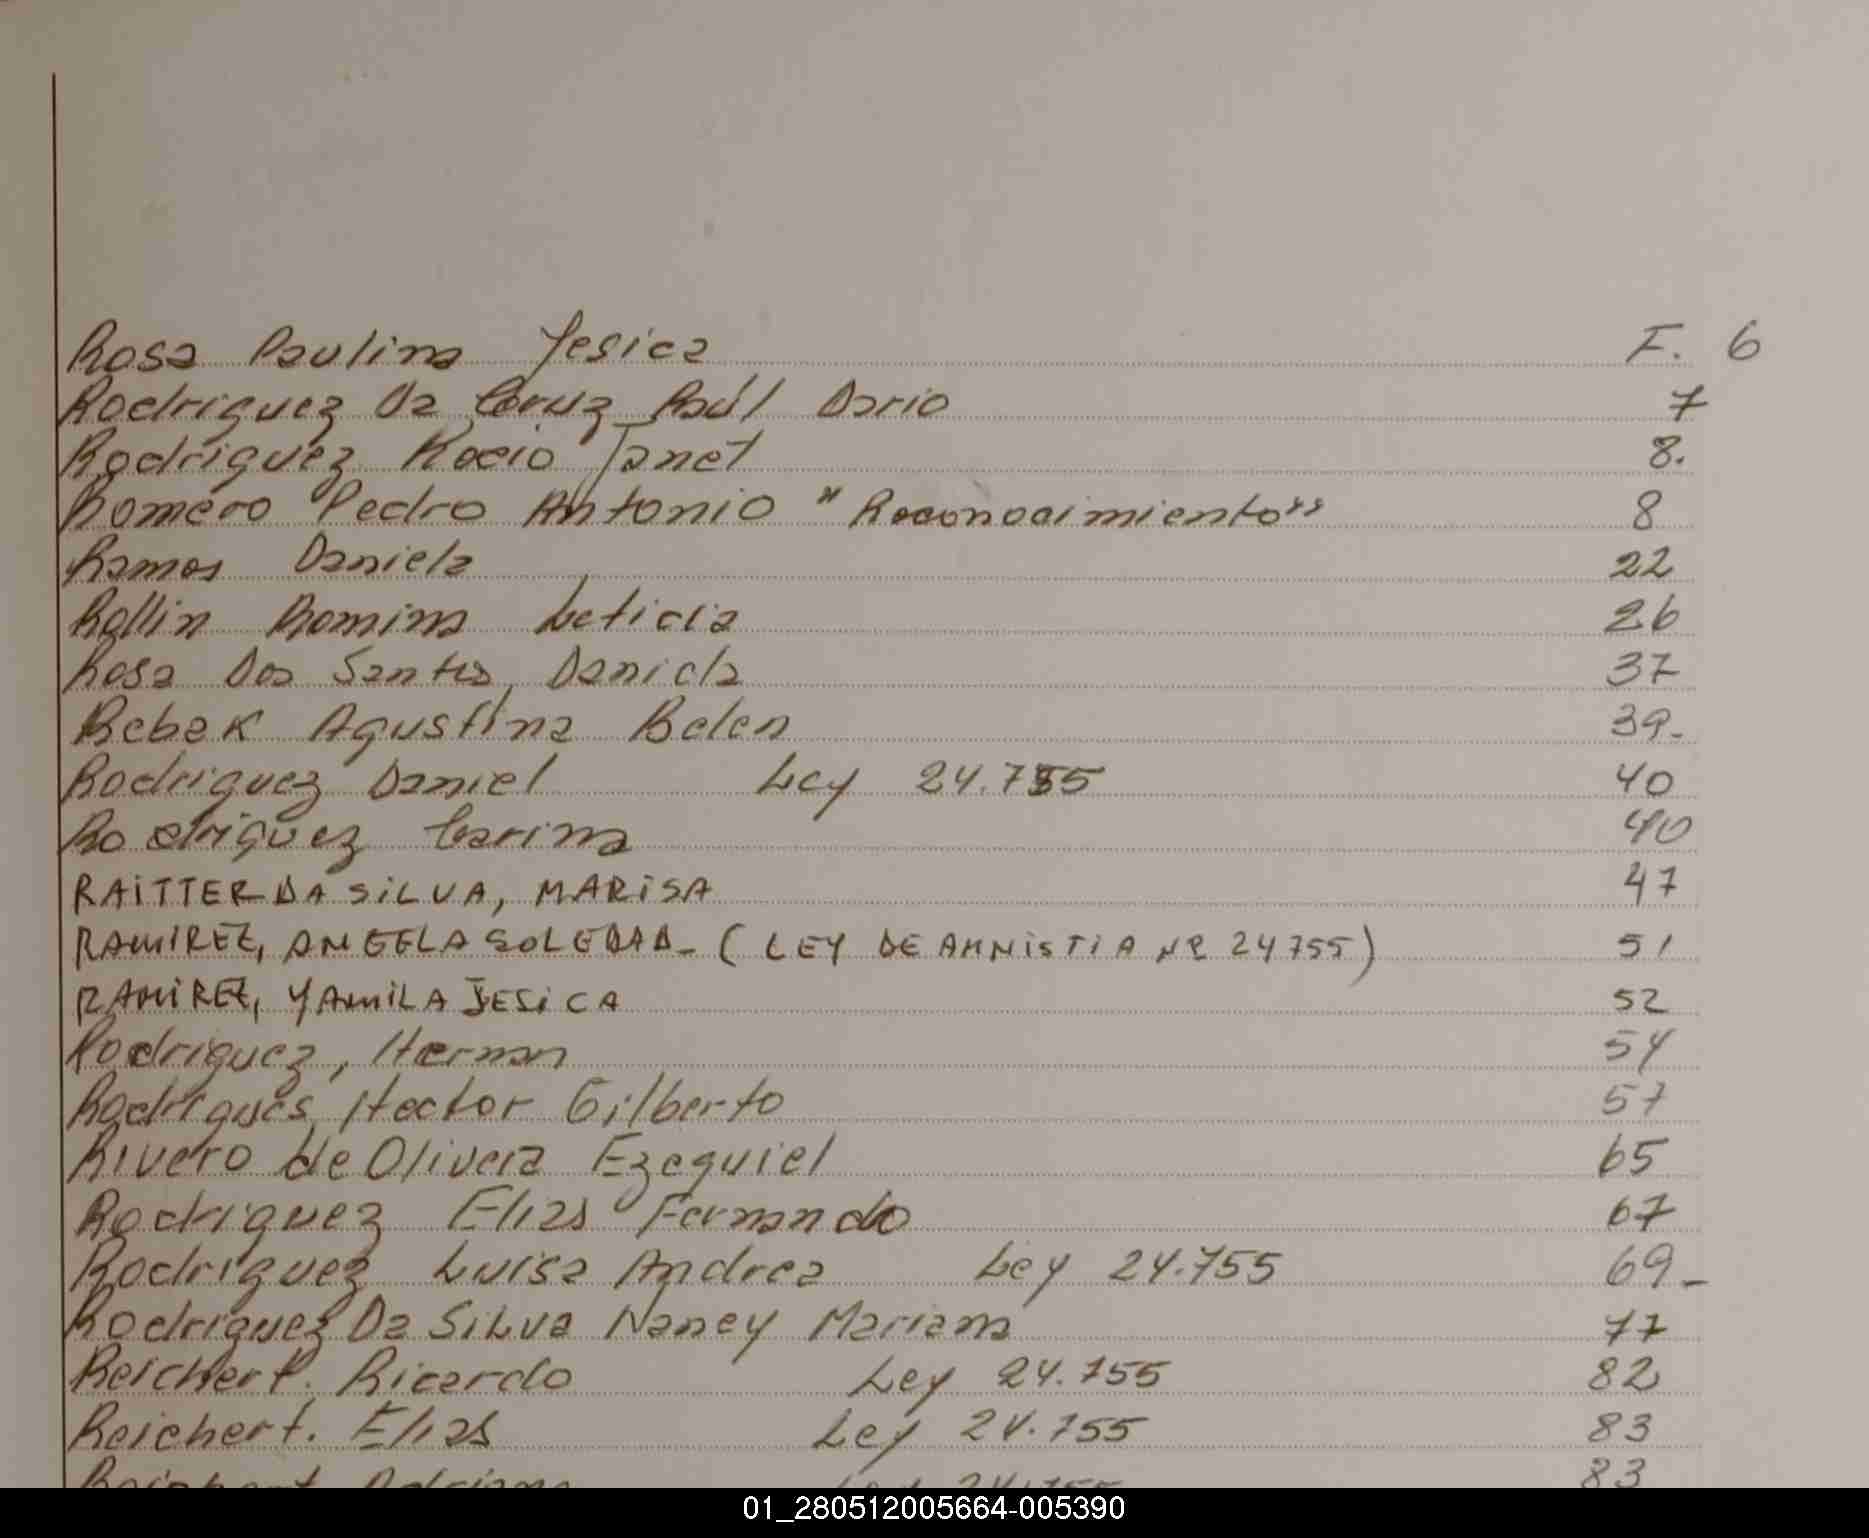 Rosa Paulina Yesica F. 6
Rodriguez Da Cruz Raúl Dario 7
Rodriguez Rocio Janet 8.
Romero Pedro Antonio "Reconocimiento" 8
Ramos Daniela 22
Rollin Romina Leticia 26
Rosa Dos Santos Daniela 37
Rebak Agustina Belen 39-
Rodriguez Daniel Ley 24.755 40
Rodriguez Carina 40
RAITTER DA SILVA, MARISA 47
RAMIREZ, ANGELA SOLEDAD- (LEY DE AMNISTIA Nº 24755) 51
RAMIREZ, YAMILA JESICA 52
Rodriguez, Hernan 54
Rodrigues Hector Gilberto 57
Rivero de Olivera Ezequiel 65
Rodriguez Elias Fernando 67
Rodriguez Luisa Andrea Ley 24.755 69-
Rodriguez Da Silva Nancy Mariana 77
Reichert. Ricardo Ley 24.755 82
Reichert. Elias Ley 24.755 83
Reichert Adriana Ley 24.755 83
01_280512005664-005390